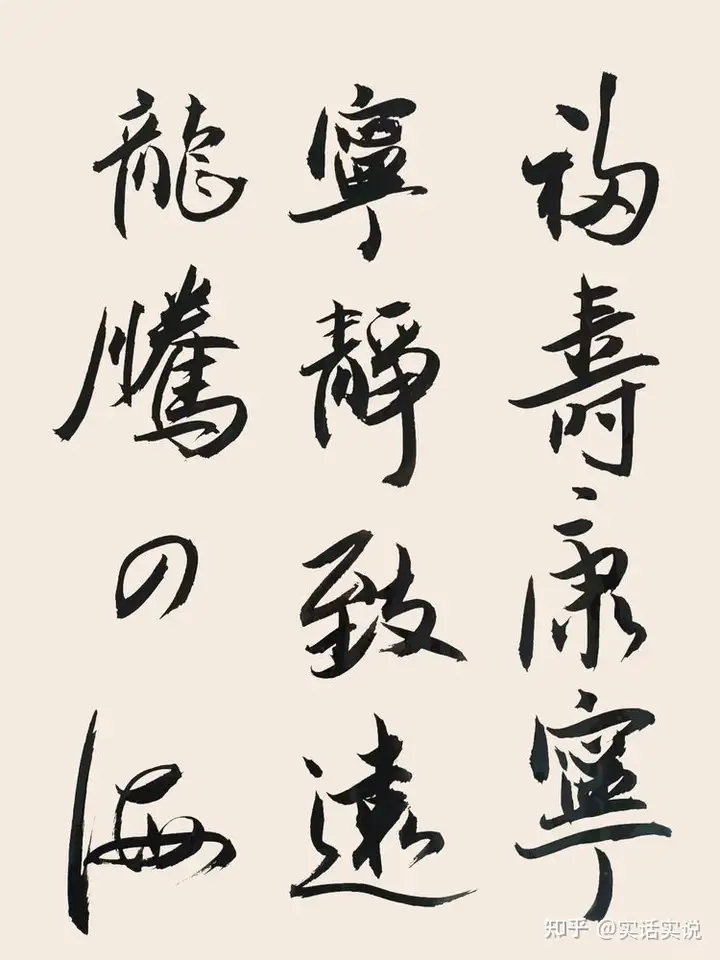 福壽康寧
寧靜致遠
龍騰四海
知乎 @实话实说